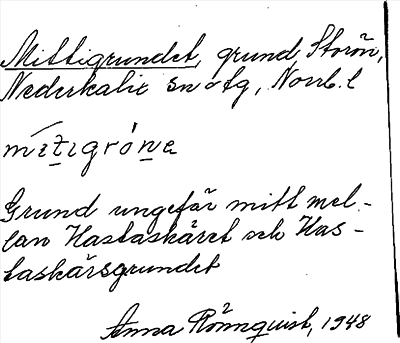 Mittigrundet, grund, Storön,
Nederkalix sn o tg, Norrb. l
Grund ungefär mitt mel-
lan Hastaskäret och Has-
taskärsgrundet
Anna Rönnquist, 1948